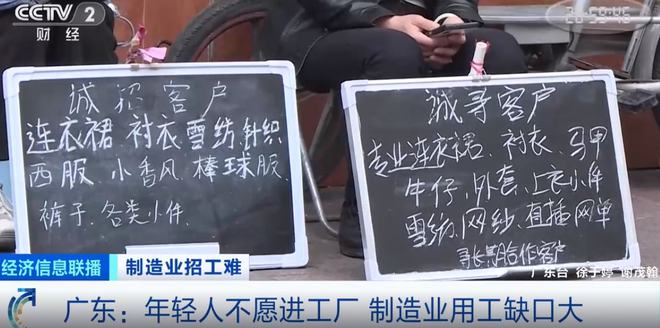 CCTV 2
财经
20:59:46
诚招客户
连衣裙、衬衣雪纺针织
西服、小香风、棒球服、
裤子、各类小件、
诚寻客户
专业连衣裙、衬衣、马甲
牛仔、外套、上衣小件
雪纺、网纱、直播网单
寻长期合作客户
广东台 徐予婷 谢茂翰
经济信息联播 制造业招工难
广东：年轻人不愿进工厂 制造业用工缺口大